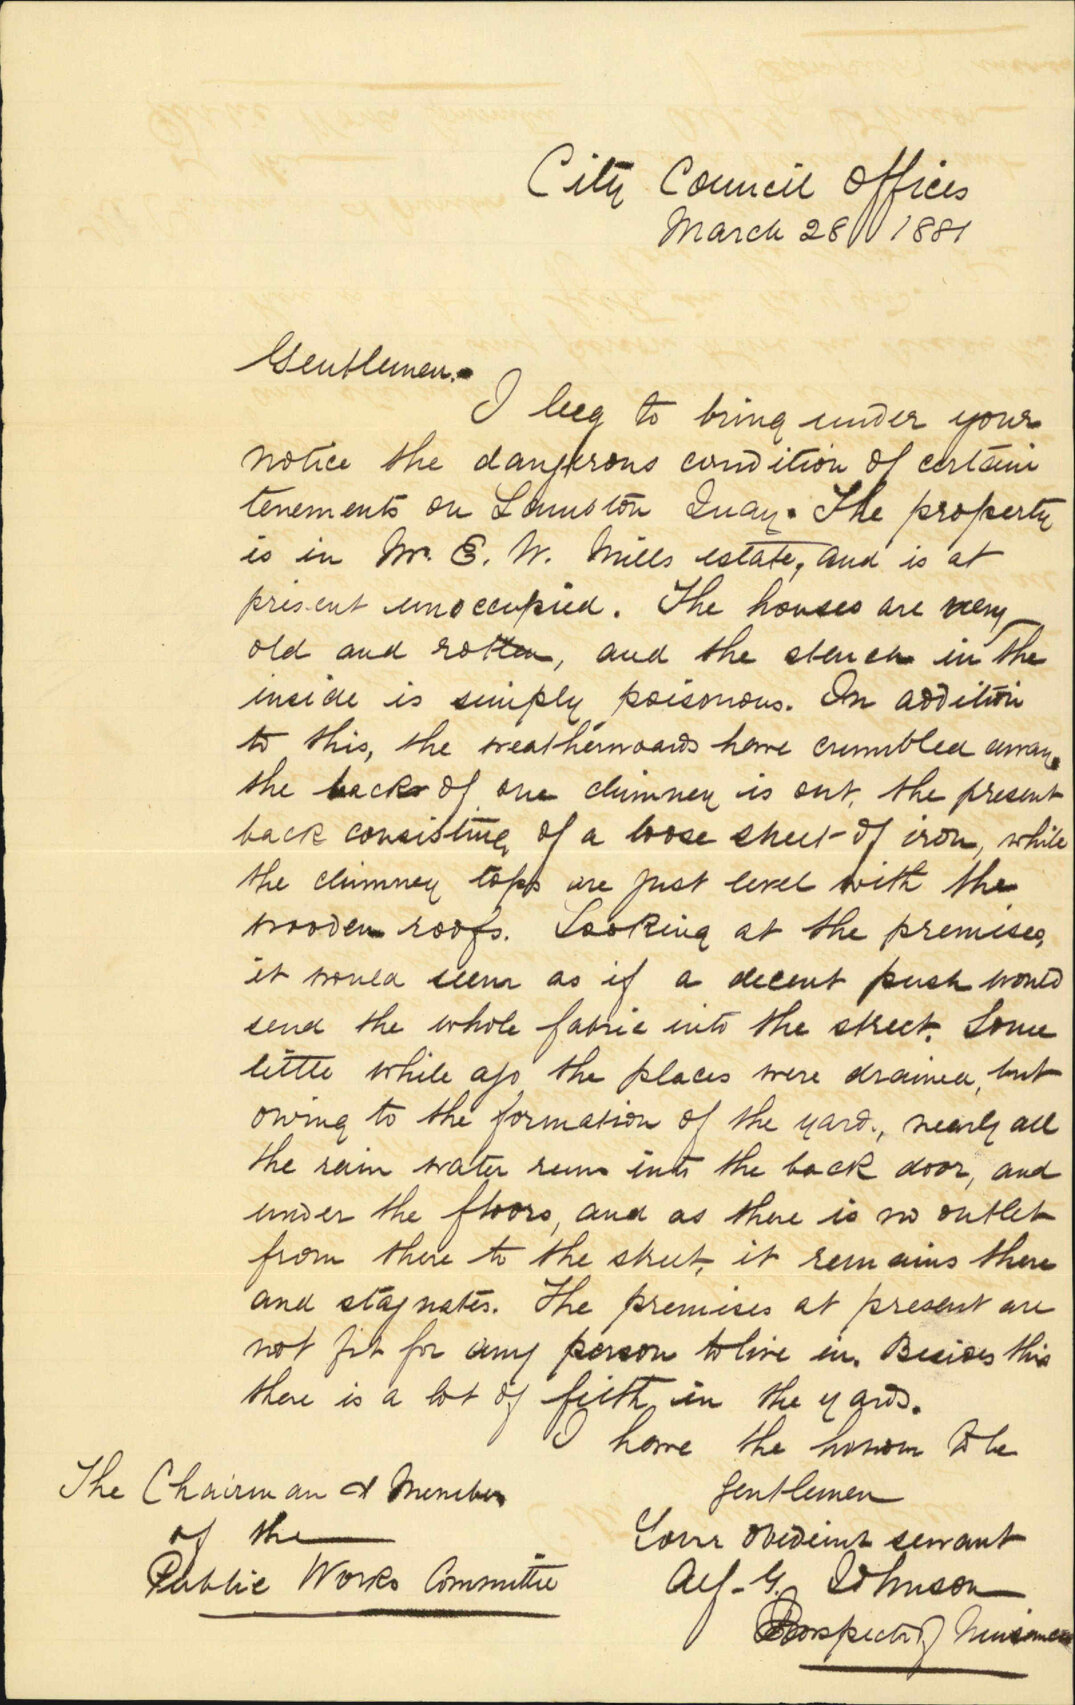 City Council Offices
March 28 1881
Gentlemen.
I beg to bring under your
notice the dangerous condition of certain
tenements on Lambton Quay. The property
is in Mr. E. W. Mills estate, and is at
present unoccupied. The houses are very
old and rotten, and the stench in the
inside is simply poisonous. In addition
to this, the weatherboards have crumbled away
the back of one chimney is out, the present
back consisting of a loose sheet of iron, while
the chimney tops are just level with the
wooden roofs. Looking at the premises,
it would seem as if a decent push would
send the whole fabric into the street. Some
little while ago the places were drained, but
owing to the formation of the yard, nearly all
the rain water runs into the back door, and
under the floors, and as there is no outlet
from there to the street, it remains there
and stagnates. The premises at present are
not fit for any person to live in. Besides this
there is a lot of filth in the yards.
I have the honour to be
Gentlemen
Your obedient servant
Alf. G. Johnson
Inspector of Nuisances
The Chairman & Members
of the
Public Works Committee